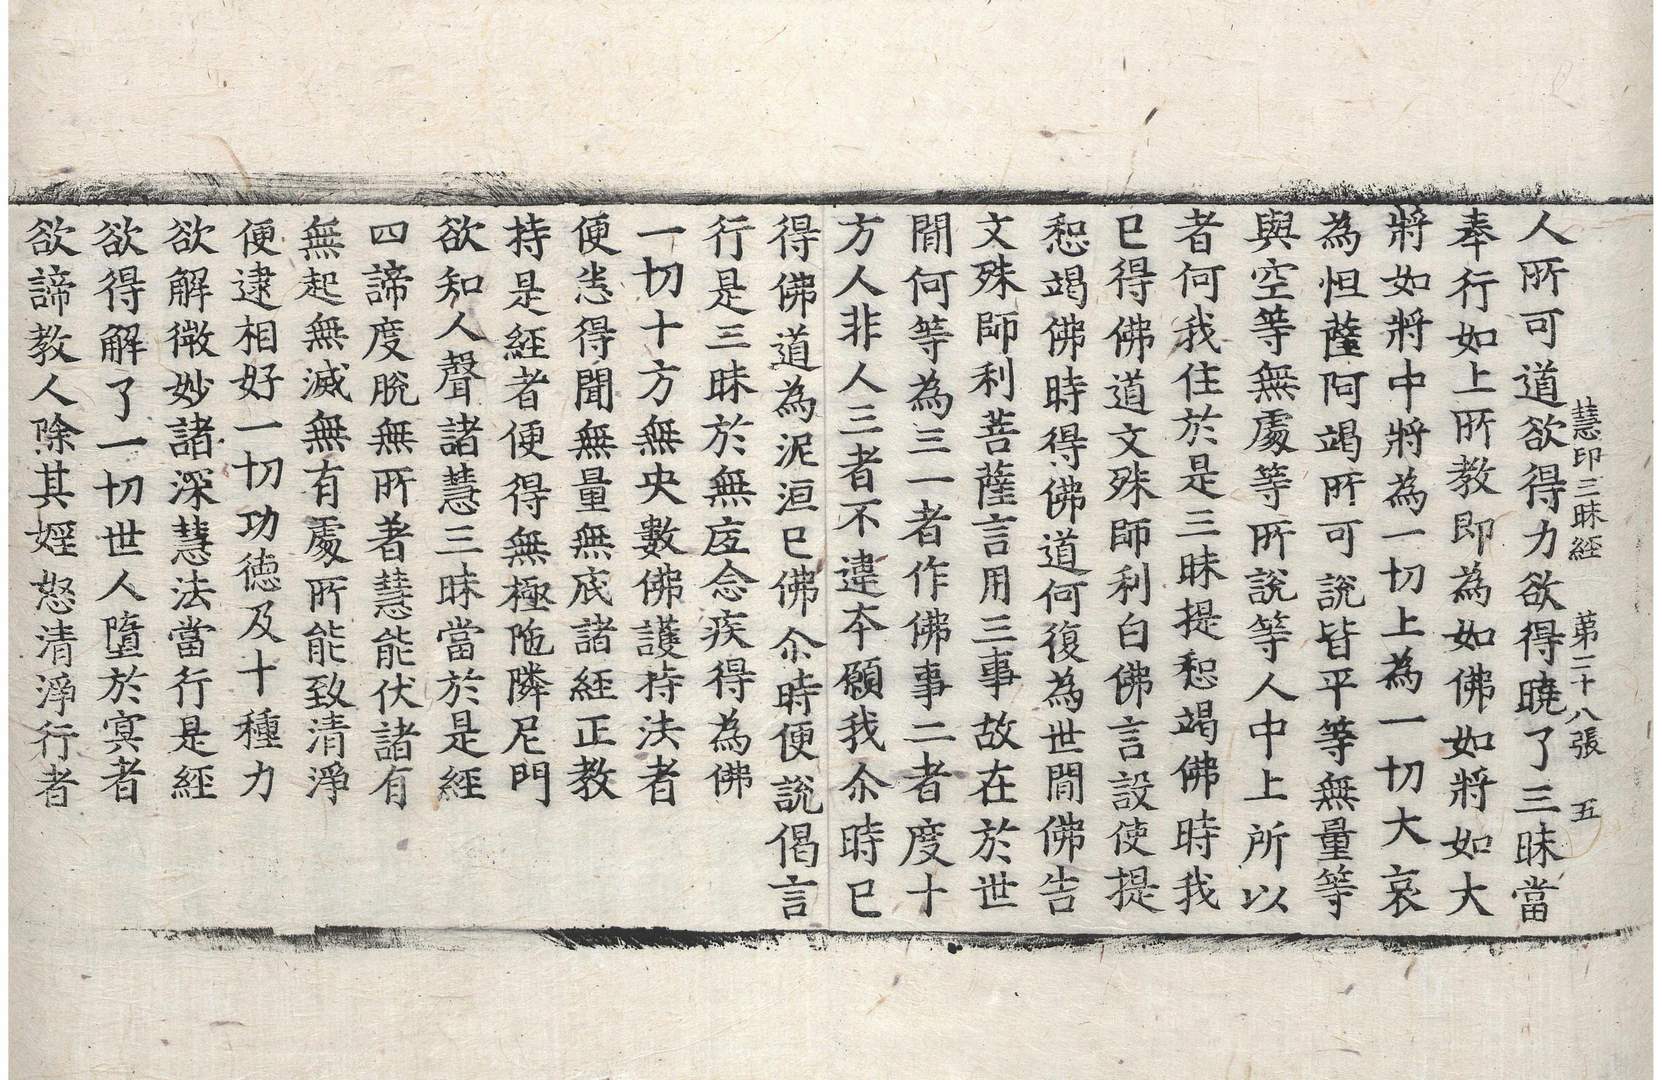 慧印三昧經 第二十八張 五
人所可道欲得力欲得曉了三昧當
奉行如上所教即為如佛如將如大
將如將中將為一切上為一切大哀
為怛薩阿竭所可說皆平等無量等
與空等無處等所說等人中上所以
者何我住於是三昧提惒竭佛時我
已得佛道文殊師利白佛言設使提
惒竭佛時得佛道何復為世間佛告
文殊師利菩薩言用三事故在於世
間何等為三一者作佛事二者度十
方人非人三者不違本願我尒時已
得佛道為泥洹已佛尒時便說偈言
行是三昧於無底念疾得為佛
一切十方無央數佛護持法者
便悉得聞無量無底諸經正教
持是經者便得無極陁隣尼門
欲知人聲諸慧三昧當於是經
四諦度脫無所著慧能伏諸有
無起無滅無有處所能致清淨
便逮相好一切功德及十種力
欲解微妙諸深慧法當行是經
欲得解了一切世人墮於㝠者
欲諦教人除其婬怒清淨行者